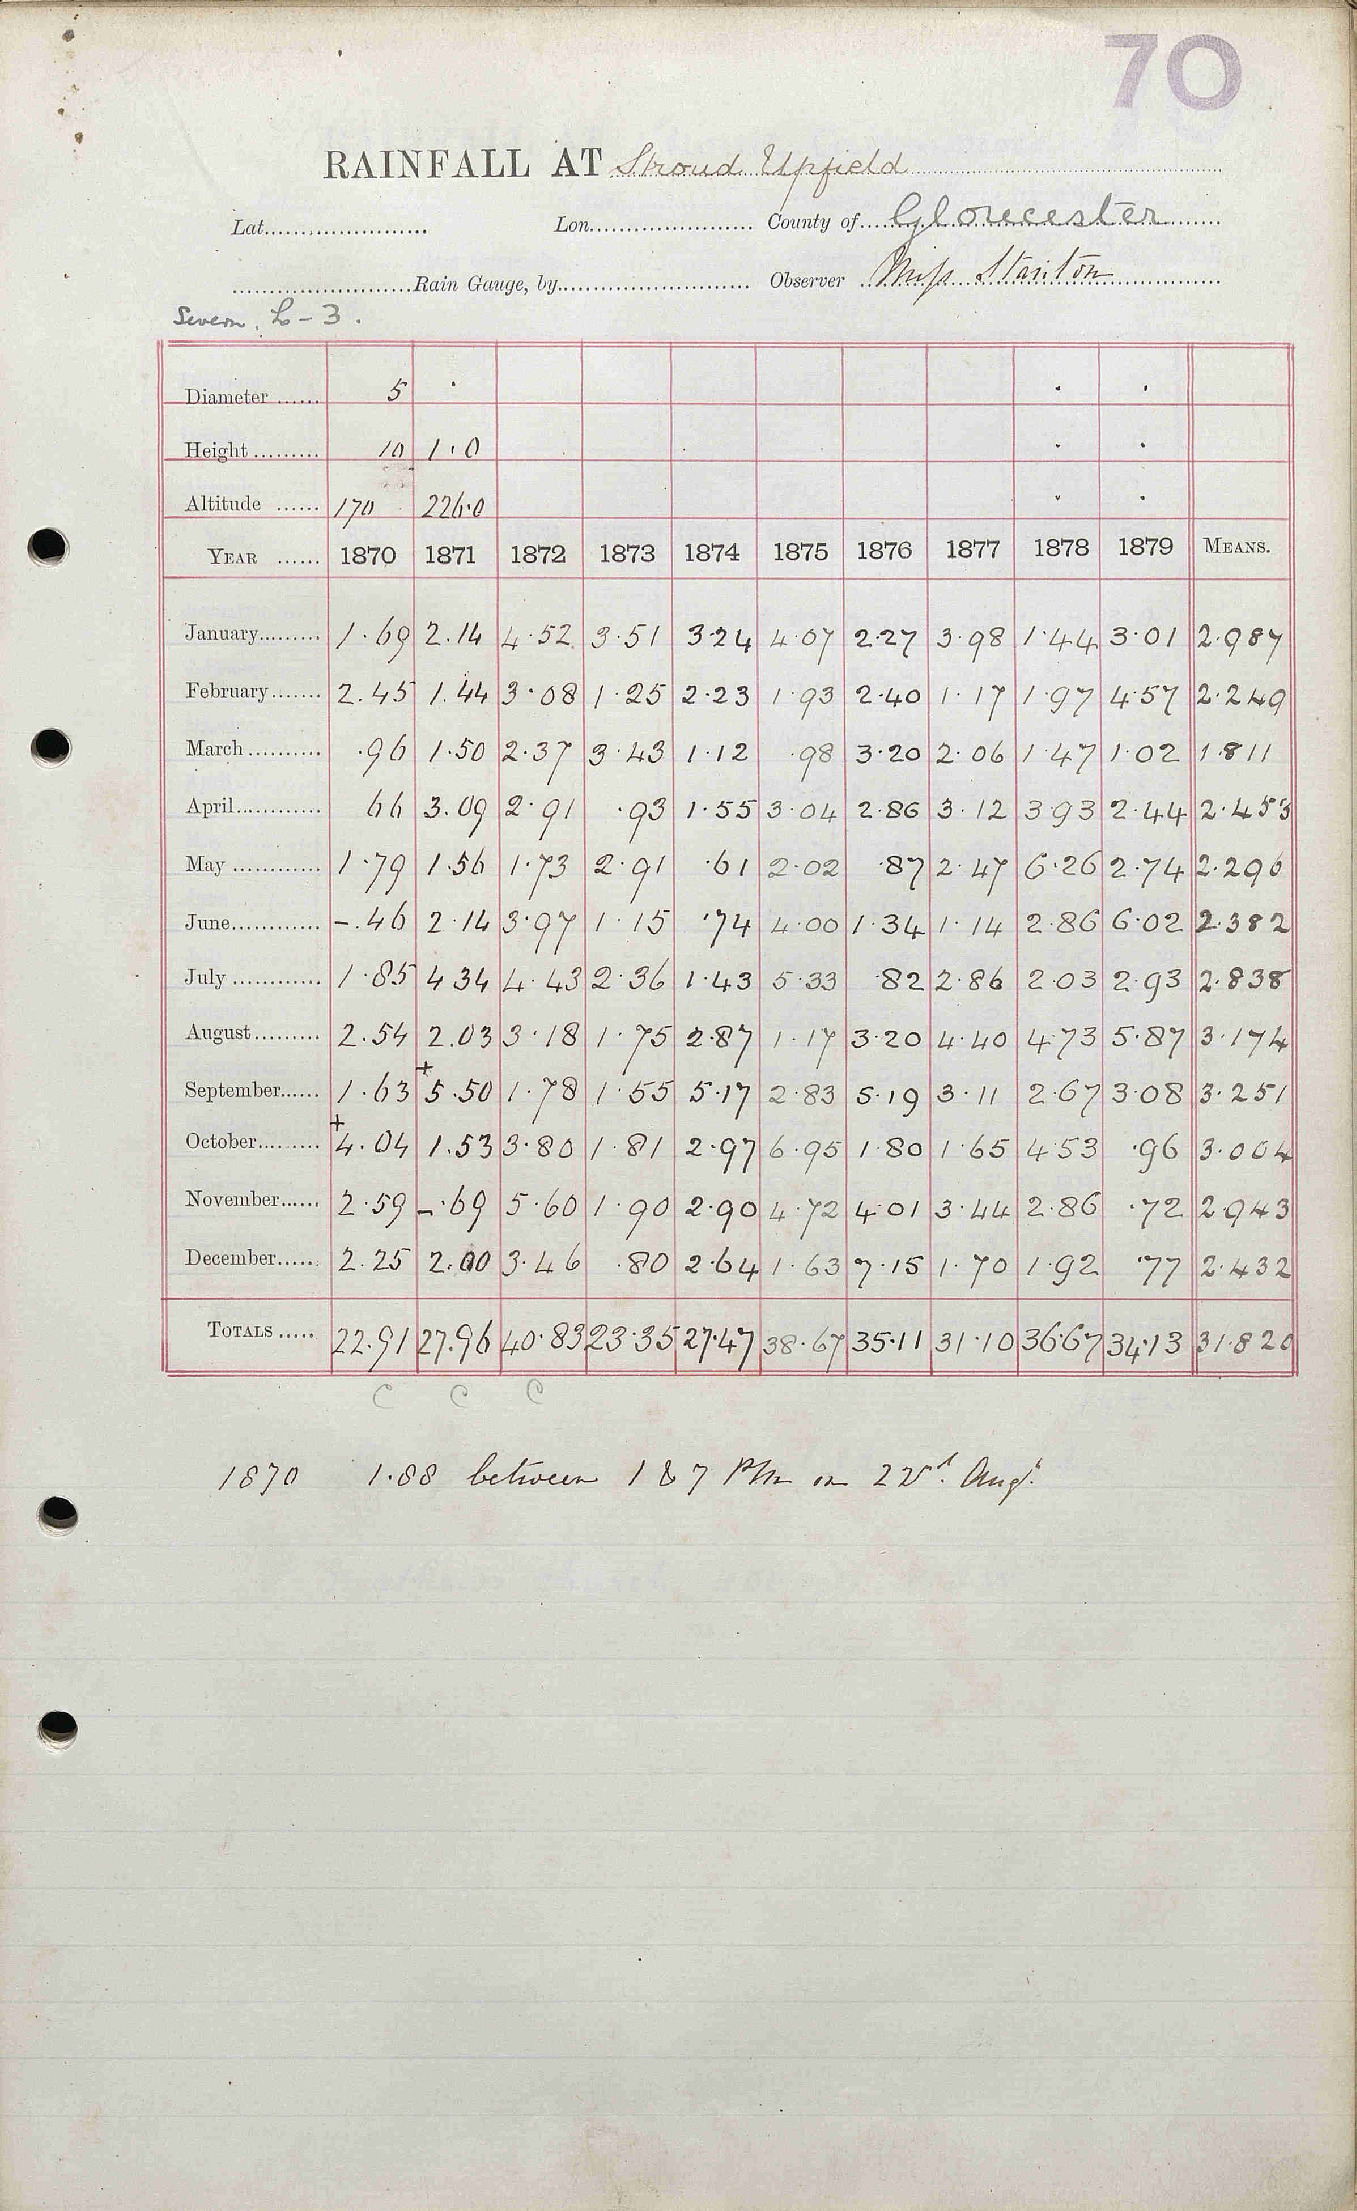 70
RAINFALL AT Stroud Upfield
Lat. Lon. County of Gloucester
Rain Gauge, by Observer Miss Stanton
Severn. L-3.
Diameter 5 · · ·
Height 10 1·0 · ·
Altitude 170 226·0 · ·
YEAR 1870 1871 1872 1873 1874 1875 1876 1877 1878 1879 MEANS.
January 1·69 2.14 4·52 3·51 3·24 4·07 2·27 3·98 1·44 3·01 2·987
February 2.45 1.44 3·08 1·25 2·23 1·93 2·40 1·17 1·97 4·57 2·249
March ·96 1·50 2·37 3·43 1·12 ·98 3·20 2·06 1·47 1·02 1·811
April 66 3.09 2·91 ·93 1·55 3·04 2·86 3·12 3·93 2·44 2·453
May 1·79 1·56 1·73 2·91 ·61 2·02 ·87 2·47 6·26 2·74 2·296
June -.46 2·14 3·97 1·15 ·74 4·00 1·34 1·14 2·86 6·02 2·382
July 1·85 4 34 4·43 2·36 1·43 5·33 ·82 2·86 2·03 2·93 2·838
August 2.54 2.03 3·18 1·75 2·87 1·17 3·20 4·40 4·73 5·87 3·174
September 1·63 +5.50 1·78 1·55 5·17 2·83 5·19 3·11 2·67 3·08 3·251
October +4.04 1.53 3·80 1·81 2·97 6·95 1·80 1·65 4·53 ·96 3·004
November 2·59 -·69 5·60 1·90 2·90 4·72 4·01 3·44 2·86 ·72 2·943
December 2.25 2.00 3·46 ·80 2·64 1·63 7·15 1·70 1·92 ·77 2·432
TOTALS 22.91 27.96 40·83 23·35 27·47 38·67 35·11 31·10 36·67 34·13 31·820
C C C
1870 1·88 between 1 & 7 PM on 22d. Augt.